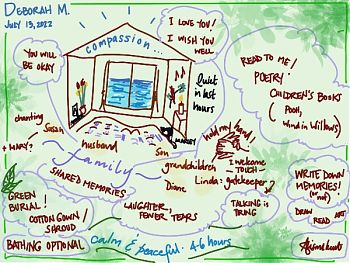 DEBORAH M.
JULY 13, 2022
I LOVE YOU!
I WISH YOU
WELL
compassion...
YOU WILL
BE OKAY
quiet
in last
hours
READ TO ME!
POETRY
CHILDREN'S BOOKS
(POOH,
wind in Willows)
chanting
Susan
+ MARY?
husband
family
Son
grandchildren
Diane
Linda:
gatekeeper
hold my hand!
I welcome
-TOUCH-
SHARED MEMORIES
GREEN
BURIAL!
COTTON GOWN/
SHROUD
BATHING OPTIONAL
LAUGHTER,
FEWER TEARS
TALKING is
TIRING
WRITE DOWN
MEMORIES!
(or not)
DRAW
READ
ART
calm & peaceful. 4-6 hours